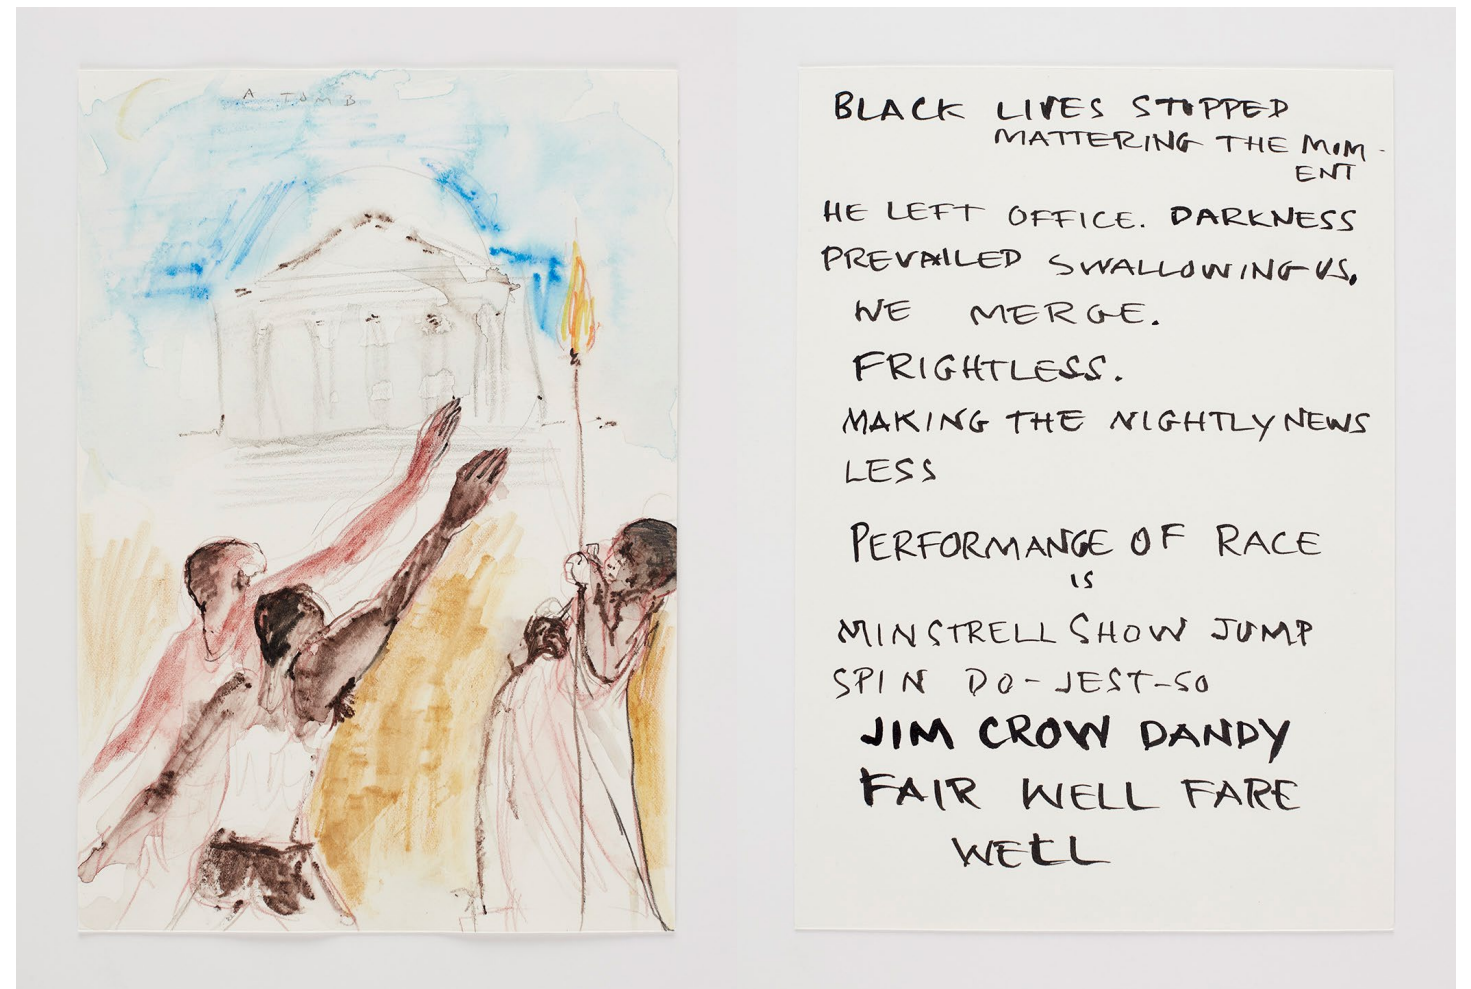 A TOMB
BLACK LIVES STOPPED
MATTERING THE MOM-
ENT
HE LEFT OFFICE. DARKNESS
PREVAILED SWALLOWING US.
WE MERGE.
FRIGHTLESS.
MAKING THE NIGHTLY NEWS
LESS
PERFORMANCE OF RACE
IS
MINSTRELL SHOW JUMP
SPIN DO-JEST-SO
JIM CROW DANDY
FAIR WELL FARE
WELL